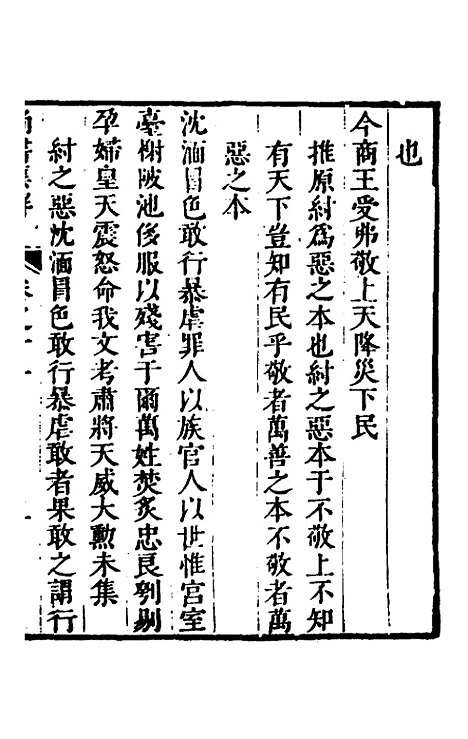 也
今商王受弗敬上天降災下民
推原紂為惡之本也紂之惡本于不敬上不知
有天下豈知有民乎敬者萬善之本不敬者萬
惡之本
沈湎冒色敢行暴虐罪人以族官人以世惟宮室
臺榭陂池侈服以殘害于爾萬姓焚炙忠良刳剔
孕婦皇天震怒命我文考肅將天威大勲未集
紂之惡沈湎冒色敢行暴虐敢者果敢之謂行